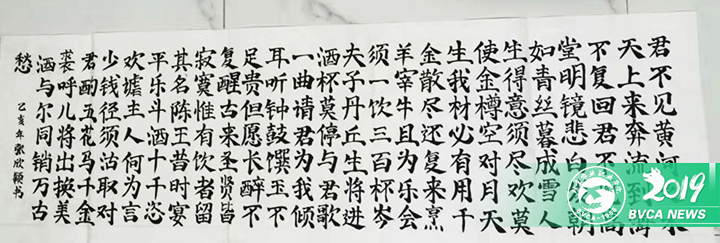 君不见黄河水
天上来奔流到海
不复回君不高
堂明镜悲白朝
如青丝暮成雪人
生得意须尽欢莫
使金樽空对月天
生我材必有用千
金散尽还复来烹
羊宰牛且为乐会
须一饮三百杯岑
夫子丹丘生将进
酒杯莫停与君歌
一曲请君为我倾
耳听钟鼓馔玉不
足贵但愿长醉不
复醒古来圣贤皆
寂寞惟有饮者留
其名陈王昔时宴
平乐斗酒十千恣
欢谑主人何为言
少钱径须沽取对
君酌五花马千金
裘呼儿将出换美
酒与尔同销万古
愁
己亥年 张欣颖书
2019
BVCA NEWS